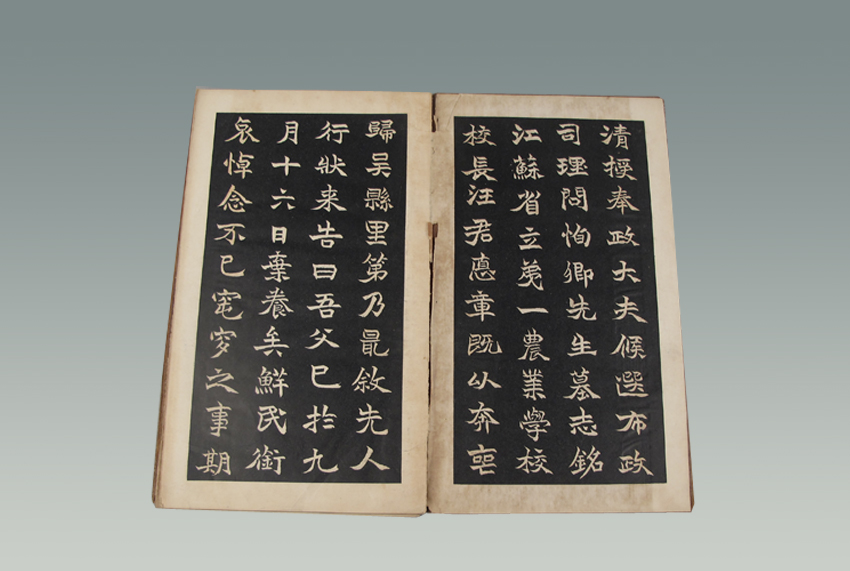 清授奉政大夫候選布政
司理問恂卿先生墓志銘
江蘇省立第一農業學校
校長汪君應章既以奔喪
歸吴縣里第乃最敘先人
行狀来告曰吾父已於九
月十六日棄養矣鮮民銜
哀悼念不已窀穸之事期